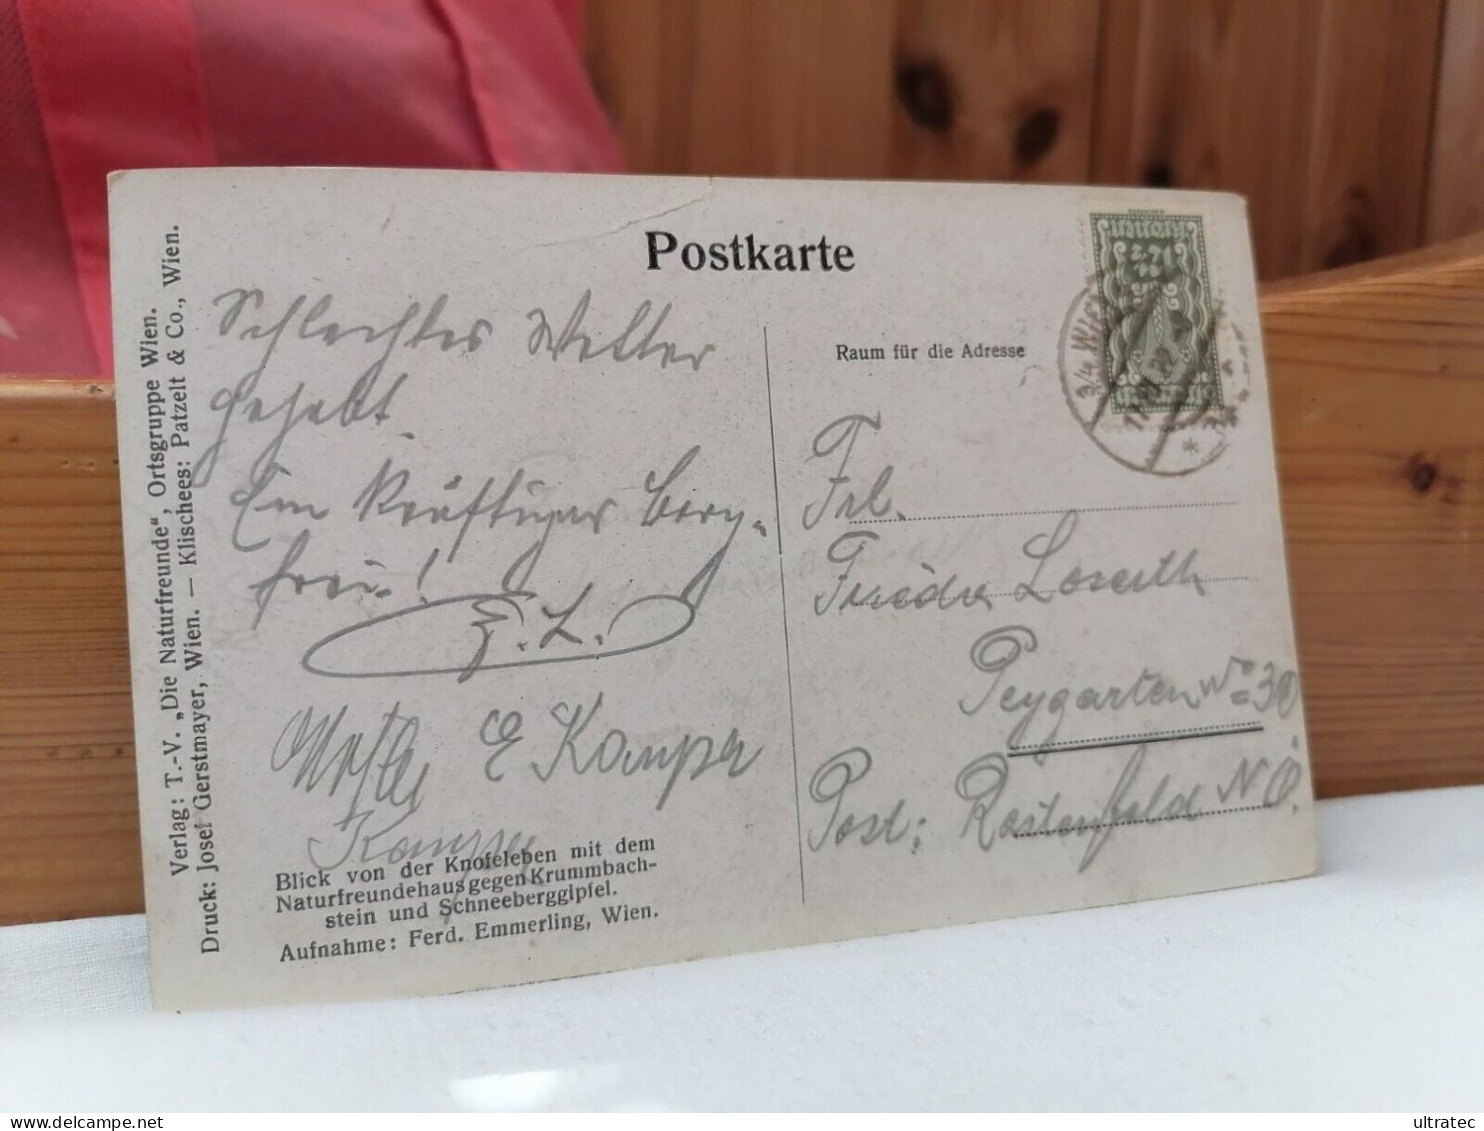 Postkarte
Schlechtes Wetter
gehabt.
Ein kräftiges Berg-
frei!
F. L.
E Kamper
Kamper
Blick von der Knofeleben mit dem
Naturfreundehaus gegen Krummbach-
stein und Schneeberggipfel.
Aufnahme: Ferd. Emmerling, Wien.
Verlag: T.-V. „Die Naturfreunde“, Ortsgruppe Wien.
Druck: Josef Gerstmayer, Wien. — Klischees: Patzelt & Co., Wien.
Raum für die Adresse
3/4 WIEN
Frl.
Frieda Loserth
Peygarten No 30
Post: Rastenfeld N.Ö.
ultratec